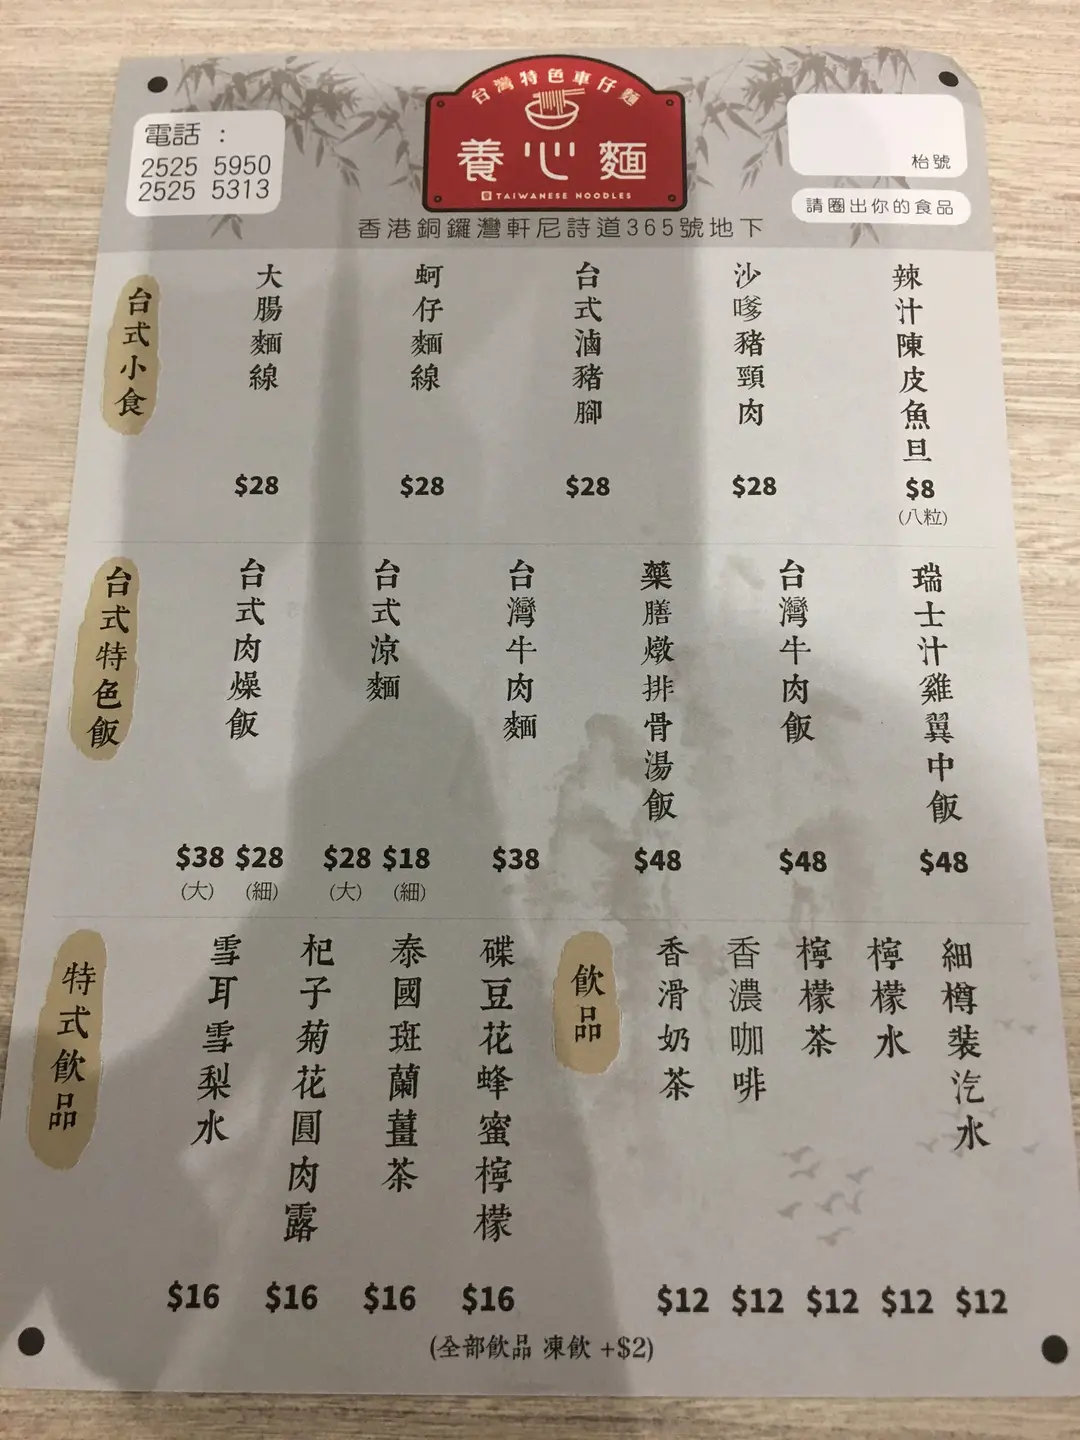 台灣特色車仔麵
養心麵
TAIWANESE NOODLES
電話：
2525 5950
2525 5313
枱號
請圈出你的食品
香港銅鑼灣軒尼詩道365號地下
台式小食
大腸麵線
$28
蚵仔麵線
$28
台式滷豬腳
$28
沙嗲豬頸肉
$28
辣汁陳皮魚旦
$8
(八粒)
台式特色飯
台式肉燥飯
$38 $28
(大) (細)
台式涼麵
$28 $18
(大) (細)
台灣牛肉麵
$38
藥膳燉排骨湯飯
$48
台灣牛肉飯
$48
瑞士汁雞翼中飯
$48
特式飲品
雪耳雪梨水
$16
杞子菊花圓肉露
$16
泰國斑蘭薑茶
$16
碟豆花蜂蜜檸檬
$16
飲品
香滑奶茶
$12
香濃咖啡
$12
檸檬茶
$12
檸檬水
$12
細樽裝汽水
$12
(全部飲品 凍飲 +$2)